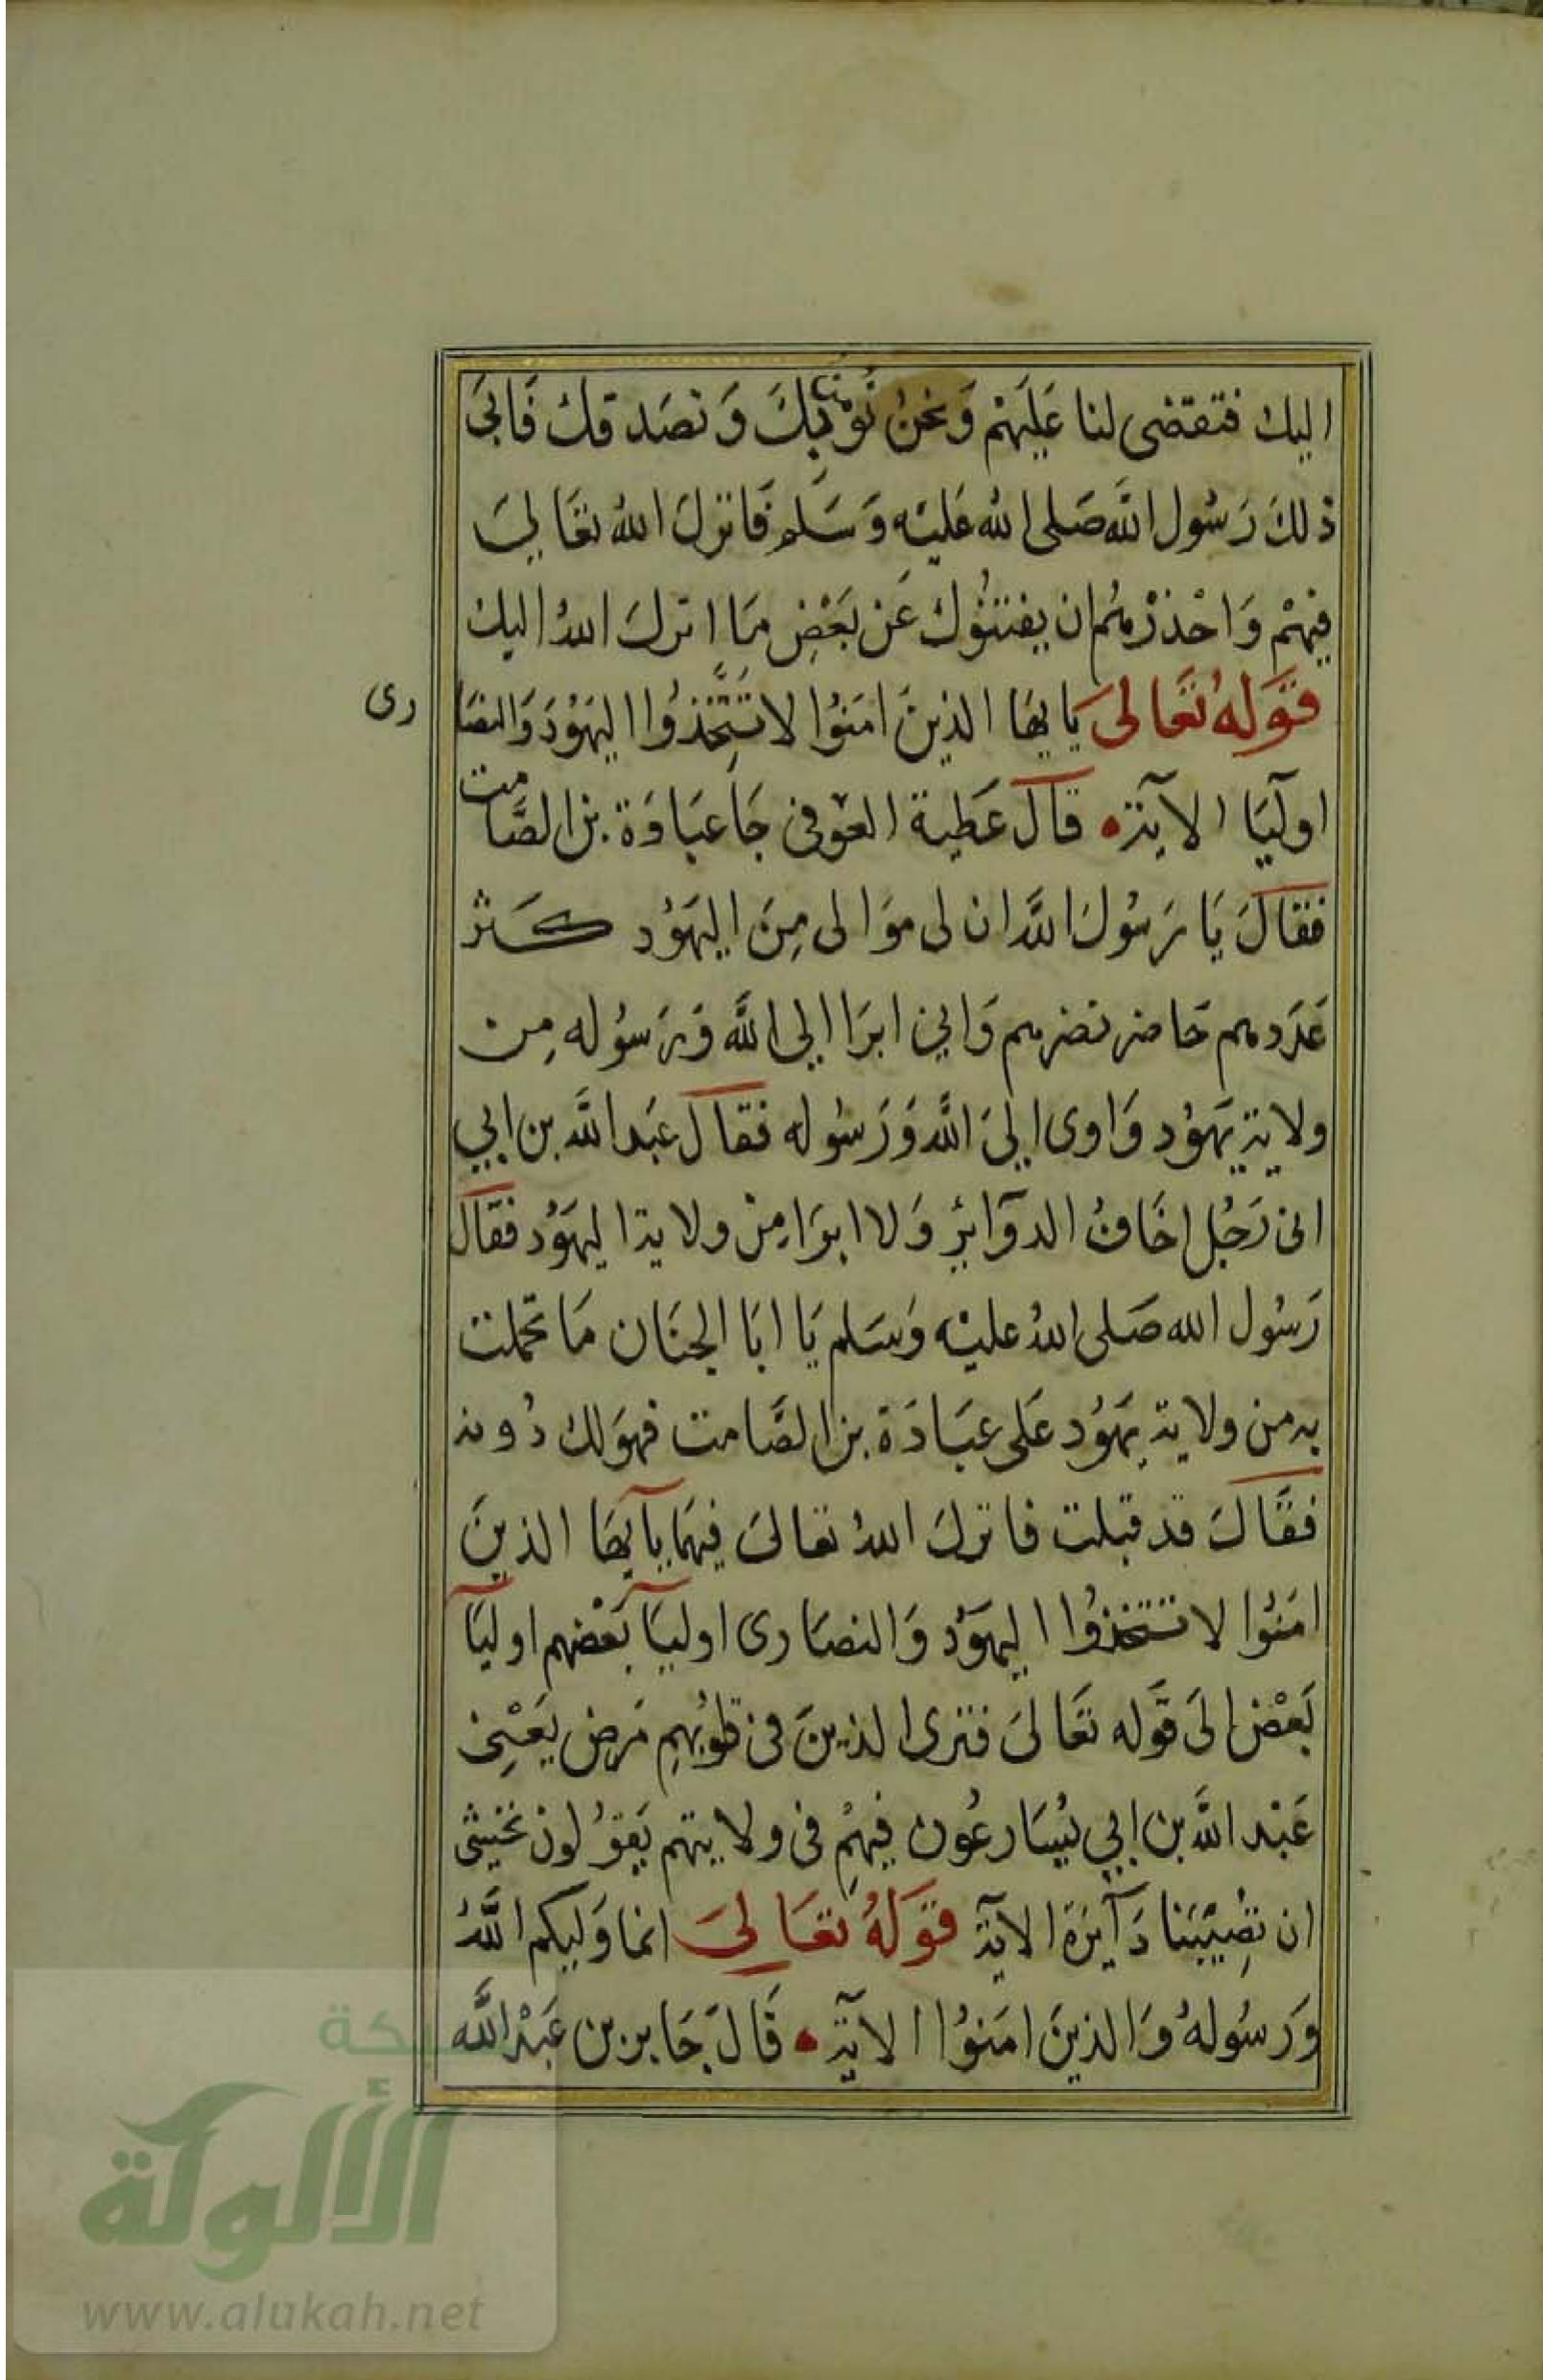 اليك فتقضى لنا عَليَهمْ وَنحنُ نُؤمن بِكَ وَ نصَدقك فَابىَ
ذلكَ رَسُول اللَّه صَلى الله عَليْه وَسَلم فَانزلَ اللهُ تعَالىَ
فيهمْ وَاحْذرْهُم ان يفتنُوكَ عَن بَعْضِ مَا انزلَ اللهُ اليك
قوَلهُ تعَالىَ يَايهَا الذينَ امَنوُا لا تَتَّخِذُوا اليَهوُدَ وَالنصَارى
اوليَآ الآية قالَ عَطية العوْفى جَا عبَادَة بن الصَّامت
فقالَ يَا رَسُولَ اللَّه ان لى موَالى مِنَ اليَهوُد كَثر
عَدَدهم حَاضر نصرهم وَانى ابرَا الى اللَّه وَرَسوُله مِن
ولاية يَهوُد وَاوى الىَ اللَّه وَرَسُوله فقالَ عَبد اللَّه بن ابي
انى رَجُل اخَافُ الدوَآئِر وَلا ابرَا مِنْ ولاية اليهَوُد فقالَ
رَسُول الله صَلى اللهُ عليْه وَسَلم يَا ابَا الجنَان مَا تحملت
به من ولاية يهَوُد عَلى عبَادَة بن الصَّامت فهوَ لك دُونه
فقالَ قد قبلت فانزلَ اللهُ تعَالىَ فيهمَا يآيهَا الذينَ
امَنوُا لا تتخذوُا اليهوَد وَالنصَارى اوليَآ بَعْضهم اوليَآ
بَعْض الىَ قوَله تعَالىَ فترى الذينَ فى قلوُبهِم مَرض يَعْنِى
عَبْد اللَّه بن ابي يُسَارعُون فيهِمْ فى ولايتهم يَقوُلونَ نخشى
ان تصِيْبَنا دَآئِرَة الآية قوَلهُ تعَالىَ انما وَليكم اللَّهُ
وَرسُولهُ وَالذينَ امَنوُا الآية قَالَ جَابر بن عَبْد اللَّه
الألوكة
www.alukah.net